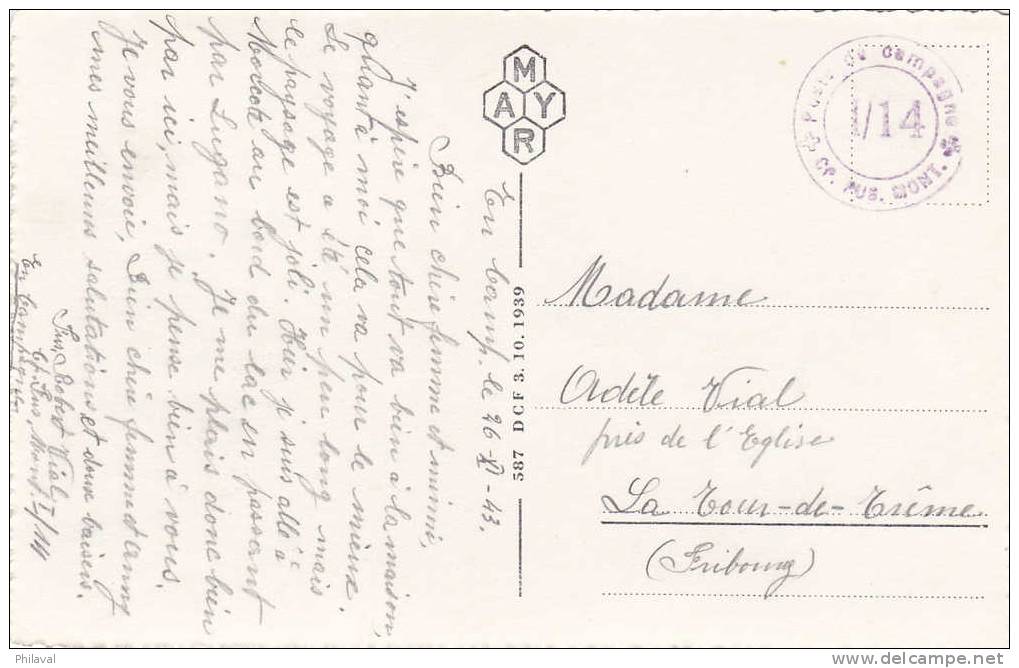 En Camp. le 26-XI-43.
Bien chère femme et mimi,
J'espère que tout va bien à la maison,
quant à moi cela va pour le mieux.
Le voyage a été un peu long mais
le paysage est joli. Hier je suis allé à
au bord du lac en passant
par Lugano. Je me plais donc bien
par ici, mais je pense bien à vous.
Je vous envoie, Bien chère femme et
mes meilleures salutations et doux baisers.
Fus. Robert Vial
Cp. Fus. Mont. I/14
En Campagne
M
A Y
R
587 DCF 3.10.1939
Poste de campagne
I/14
CP. FUS. MONT.
Madame
Adèle Vial
près de l'Eglise
La Tour-de-Trême
(Fribourg)
Philaval
www.delcampe.net